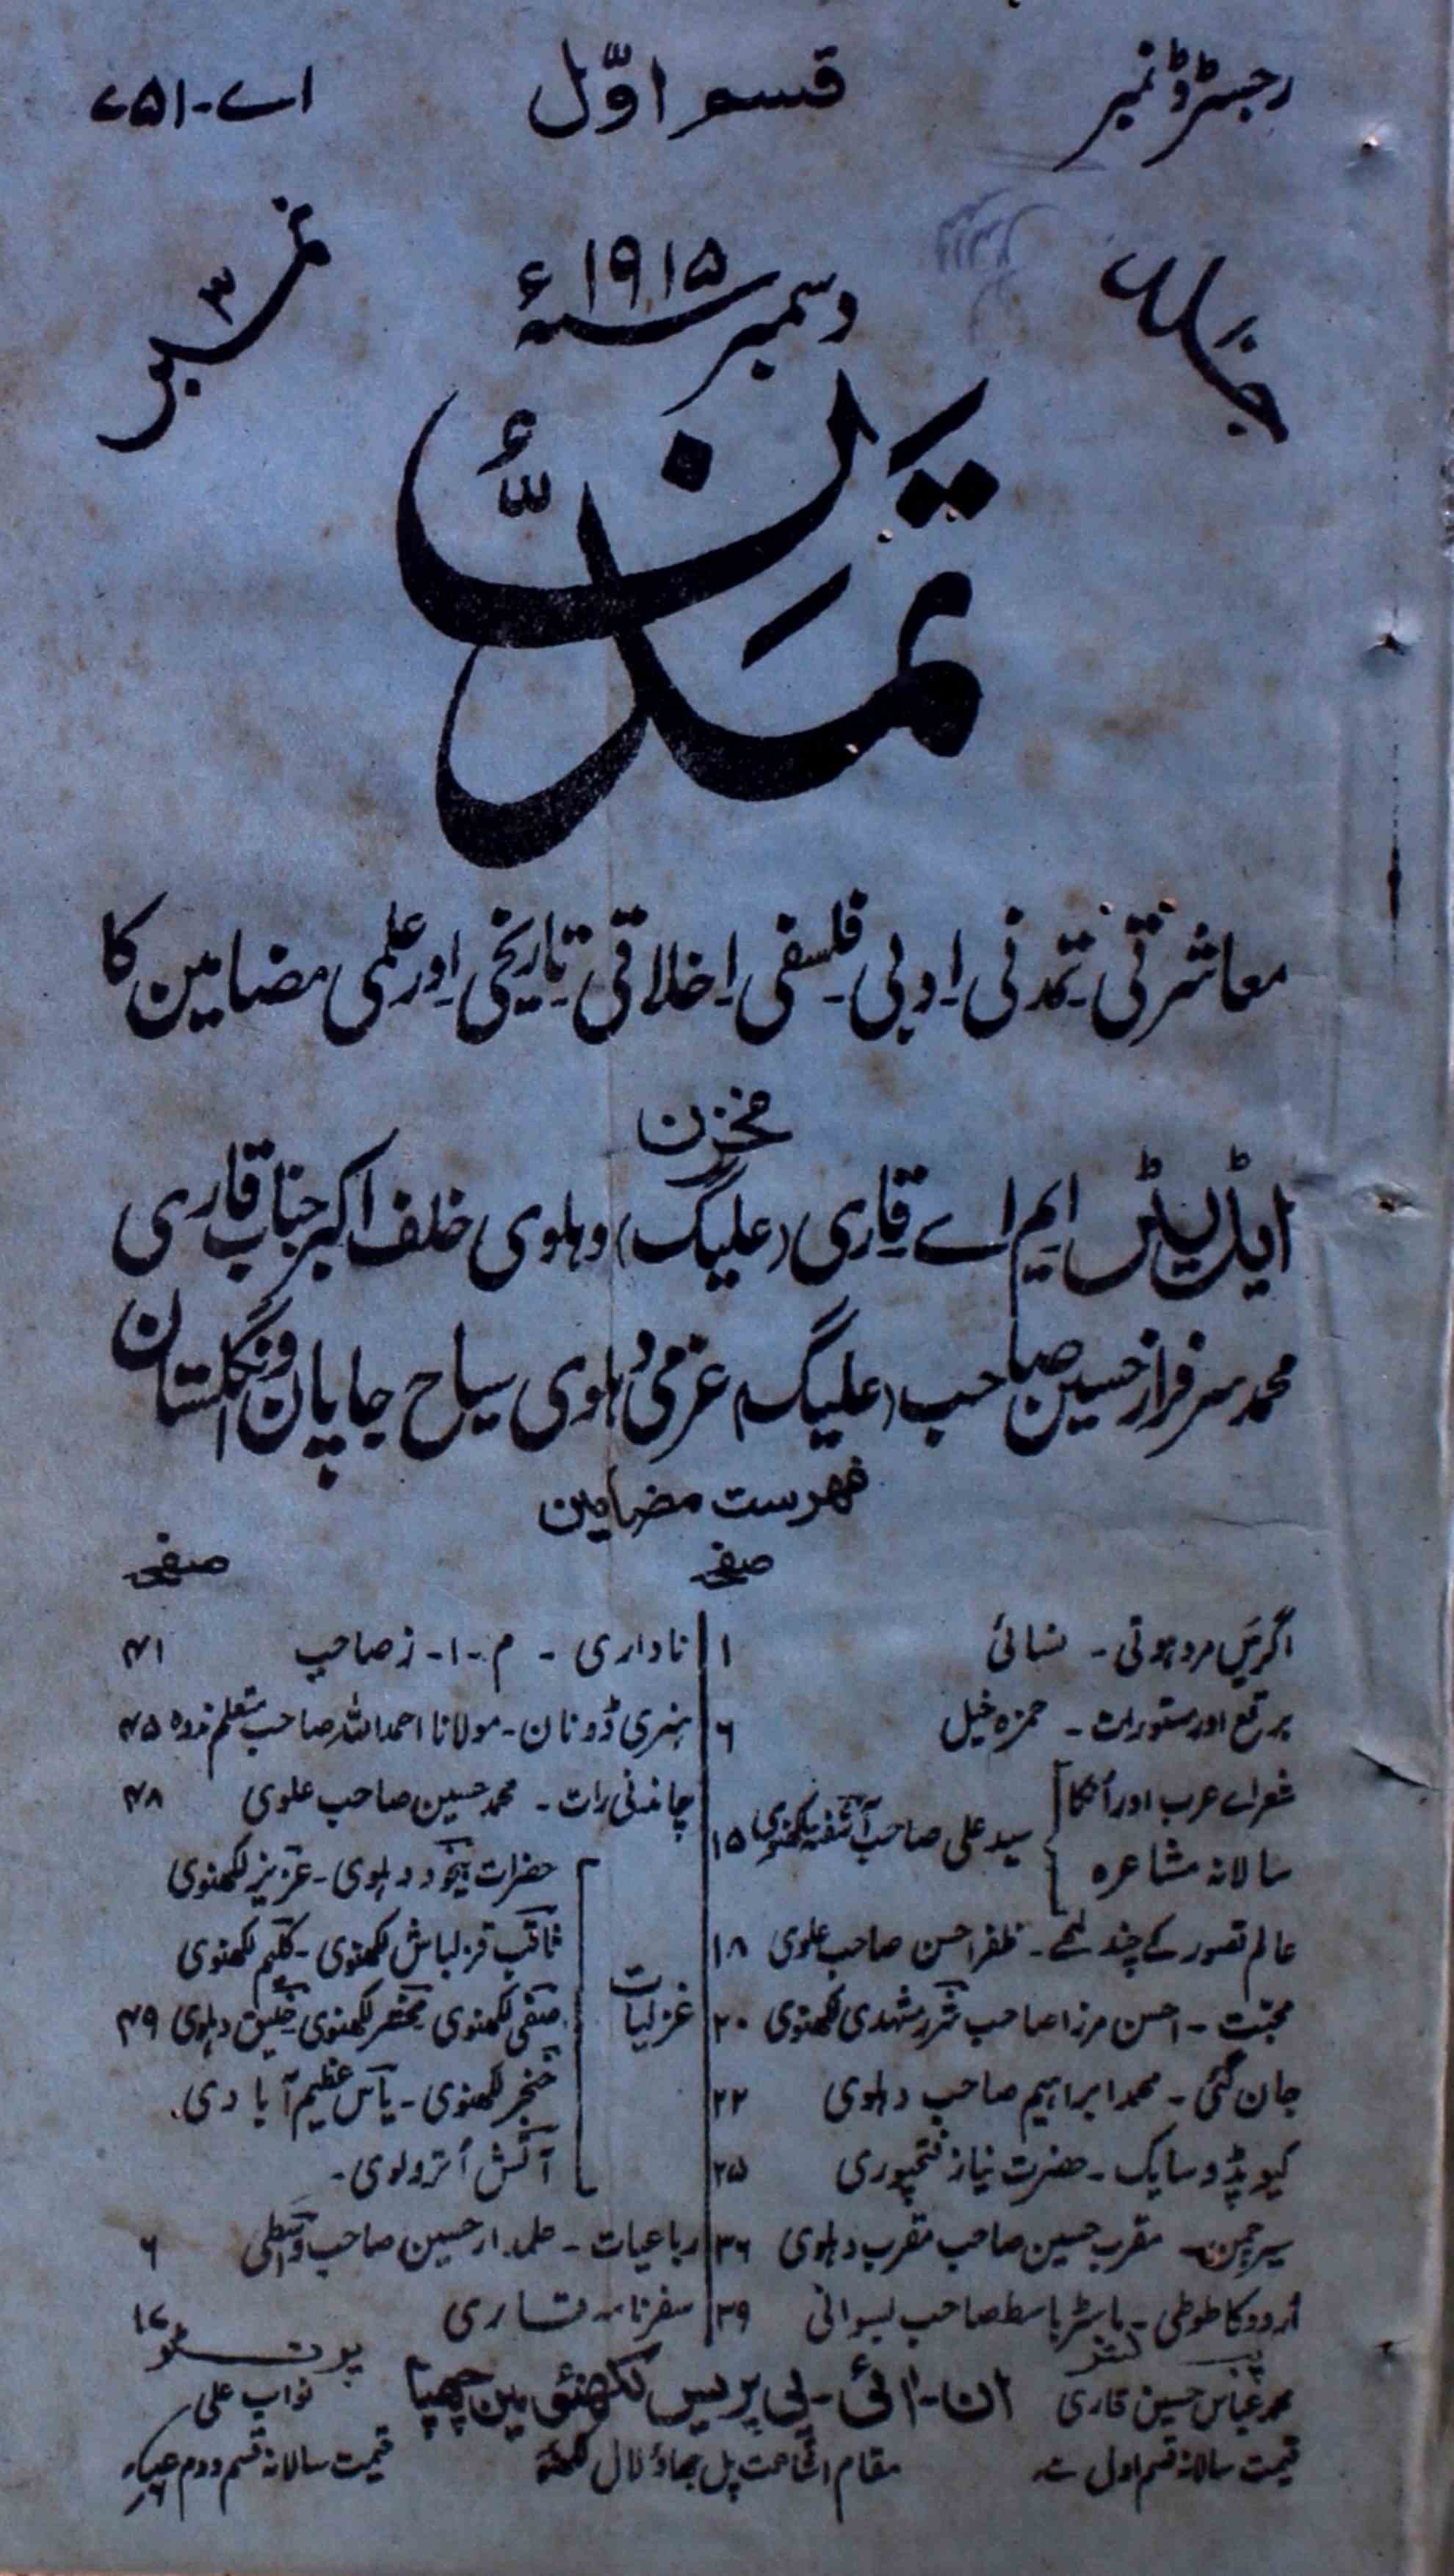 رجسٹرڈ نمبر
قسم اوّل
اے-۷۵۱
جلد
دسمبر ۱۹۱۵ سنہ ء
نمبر ۳
تمدّن
معاشرتی-تمدنی-ادبی-فلسفی-اخلاقی-تاریخی-اور علمی مضامین کا
مخزن
ایڈیٹر ایم اے قاری (علیگ) دہلوی خلف اکبر جناب قاری
محمد سرفراز حسین صاحب (علیگ) عزمی دہلوی سیاح جاپان و انگلستان
فہرست مضامین
صفحہ
اگر میں مرد ہوتی - نسائی ۱
برقع اور مستورات - حمزہ خیل ۶
شعراے عرب اور اُنکا
سالانہ مشاعرہ
سید علی صاحب آشفتہ لکھنوی ۱۵
عالم تصور کے چند لمحے - ظفر احسن صاحب علوی ۱۸
محبّت - احسن مرزا صاحب شرر مشہدی لکھنوی ۲۰
جان گئی - محمد ابراہیم صاحب دہلوی ۲۲
کیوپڈ و سایک - حضرت نیاز فتحپوری ۲۵
سیر چمن - مقرب حسین صاحب مقرب دہلوی ۳۶
اُردو کا طوطی - ماسٹر باسط صاحب بسوانی ۳۹
صفحہ
ناداری - م - ا - ز صاحب ۴۱
ہنری ڈونان - مولانا احمد اللہ صاحب متعلم ندوہ ۴۵
چاندنی رات - محمد حسین صاحب علوی ۴۸
غزلیات
حضرات بیخود دہلوی - عزیز لکھنوی
ثاقب قزلباش لکھنوی - حکیم لکھنوی
صفی لکھنوی محشر لکھنوی خلیق دہلوی ۴۹
خنجر لکھنوی - یاس عظیم آبادی
آتش اُترولوی -
رباعیات - علمدار حسین صاحب واسطی ۶
سفرنامہ قاری
پبلشر
محمد عباس حسین قاری
ان-ائی-پی پریس لکھنؤ مین چھپا
پرنٹر
نواب علی
قیمت سالانہ قسم اول
مقام اشاعت پل جھاؤلال لکھنؤ
قیمت سالانہ قسم دوم